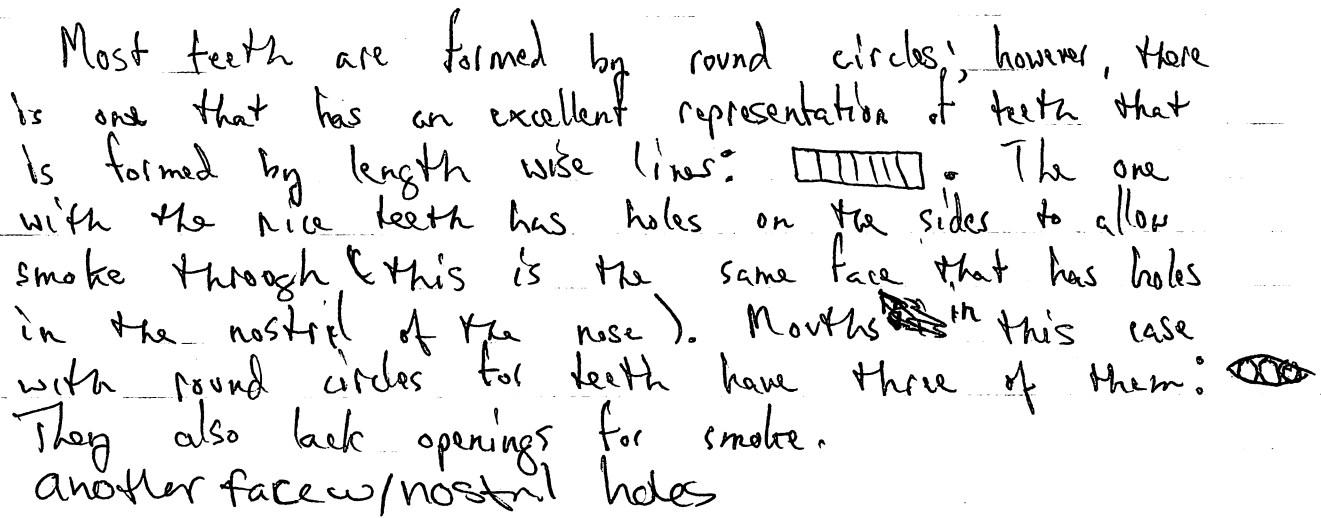 Most teeth are formed by round circles; however, there
is one that has an excellent representation of teeth that
is formed by length wise lines: . The one
with the nice teeth has holes on the sides to allow
smoke through (this is the same face that has holes
in the nostril of the nose). Mouths in this case
with round circles for teeth have three of them:
They also lack openings for smoke.
another face w/nostril holes